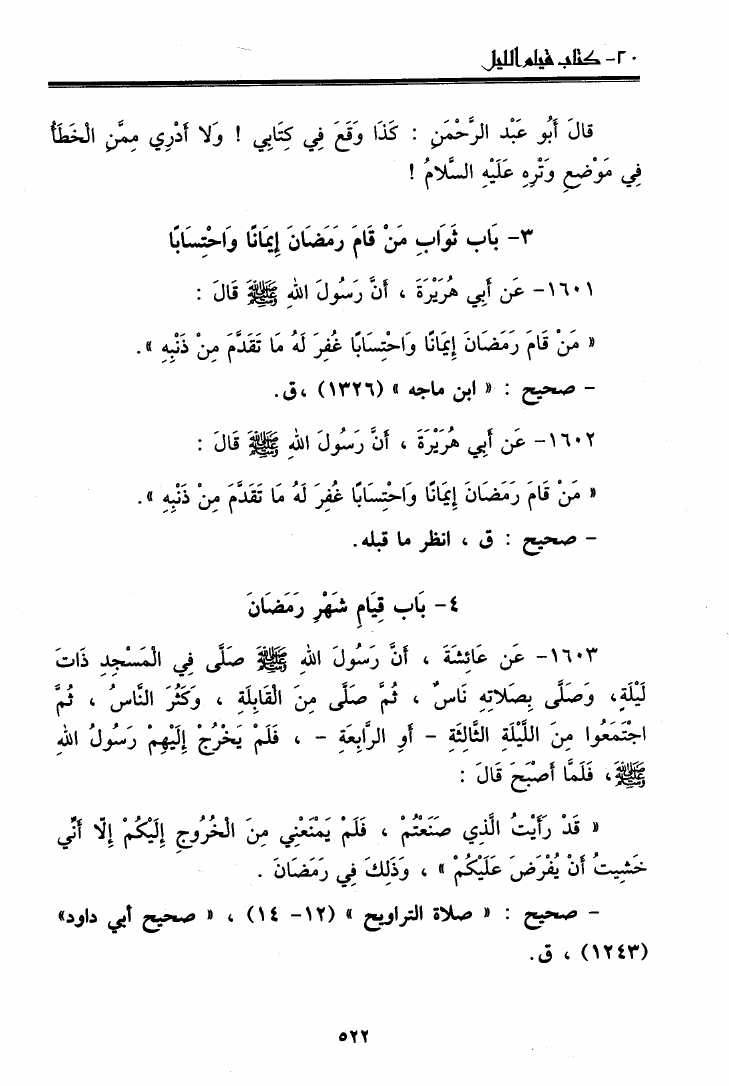 ٢٠- كتاب قيام الليل
قَالَ أَبُو عَبْد الرَّحْمَنِ : كَذَا وَقَعَ فِي كِتَابِي ! وَلَا أَدْرِي مِمَّنِ الْخَطَأُ
فِي مَوْضِعِ وَتْرِهِ عَلَيْهِ السَّلَامُ !
٣- بَاب ثَوَابِ مَنْ قَامَ رَمَضَانَ إِيمَانًا وَاحْتِسَابًا
١٦٠١- عَن أَبِي هُرَيْرَةَ ، أَنَّ رَسُولَ اللهِ ﷺ قَالَ :
« مَنْ قَامَ رَمَضَانَ إِيمَانًا وَاحْتِسَابًا غُفِرَ لَهُ مَا تَقَدَّمَ مِنْ ذَنْبِهِ ».
- صحيح : « ابن ماجه » (١٣٢٦) ،ق.
١٦٠٢- عَن أَبِي هُرَيْرَةَ ، أَنَّ رَسُولَ اللهِ ﷺ قَالَ :
« مَنْ قَامَ رَمَضَانَ إِيمَانًا وَاحْتِسَابًا غُفِرَ لَهُ مَا تَقَدَّمَ مِنْ ذَنْبِهِ ».
- صحيح : ق ، انظر ما قبله.
٤- بَاب قِيَامِ شَهْرِ رَمَضَانَ
١٦٠٣- عَن عَائِشَةَ ، أَنَّ رَسُولَ اللهِ ﷺ صَلَّى فِي الْمَسْجِدِ ذَاتَ
لَيْلَةٍ، وَصَلَّى بِصَلَاتِهِ نَاسٌ ، ثُمَّ صَلَّى مِنَ الْقَابِلَةِ ، وَكَثُرَ النَّاسُ ، ثُمَّ
اجْتَمَعُوا مِنَ اللَّيْلَةِ الثَّالِثَةِ - أَوِ الرَّابِعَةِ - ، فَلَمْ يَخْرُجْ إِلَيْهِمْ رَسُولُ اللهِ
ﷺ، فَلَمَّا أَصْبَحَ قَالَ :
« قَدْ رَأَيْتُ الَّذِي صَنَعْتُمْ ، فَلَمْ يَمْنَعْنِي مِنَ الْخُرُوجِ إِلَيْكُمْ إِلَّا أَنِّي
خَشِيتُ أَنْ يُفْرَضَ عَلَيْكُمْ » ، وَذَلِكَ فِي رَمَضَانَ .
- صحيح : « صلاة التراويح » (١٢- ١٤) ، « صحيح أبي داود»
(١٢٤٣) ، ق.
٥٢٢